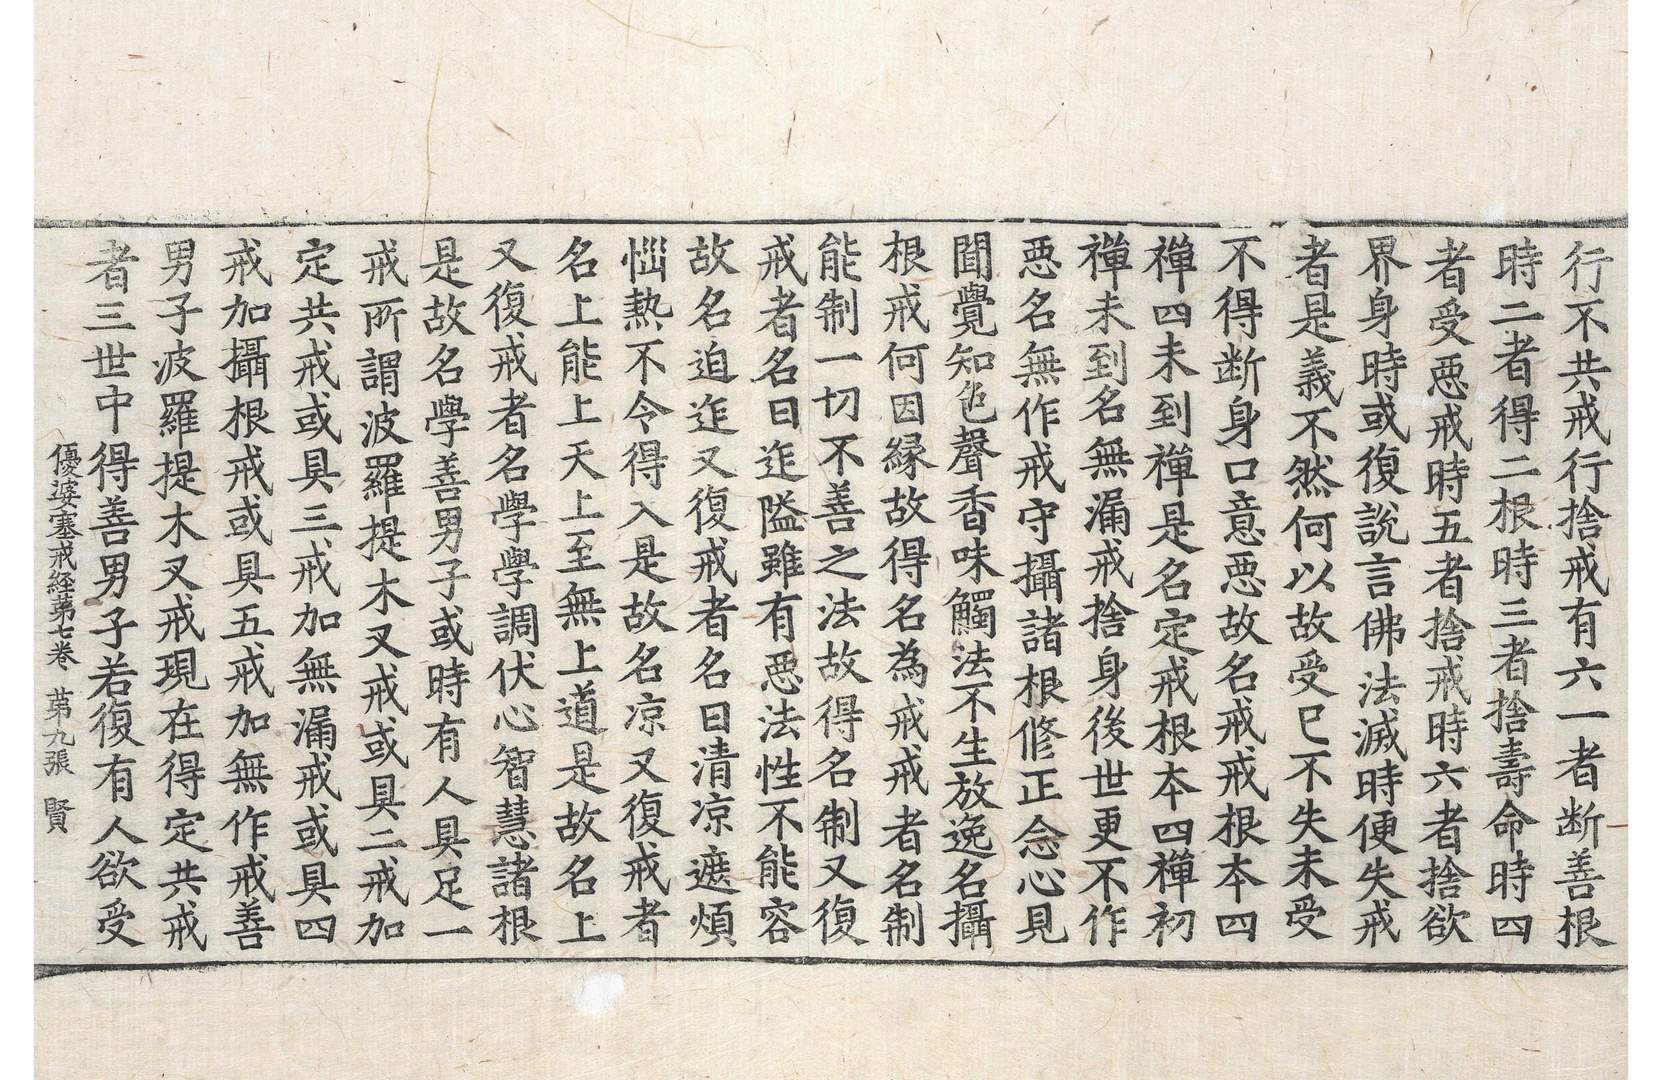 行不共戒行捨戒有六一者断善根
時二者得二根時三者捨壽命時四
者受惡戒時五者捨戒時六者捨欲
界身時或復說言佛法滅時便失戒
者是義不然何以故受已不失未受
不得断身口意惡故名戒戒根本四
禪四未到禪是名定戒根本四禪初
禪未到名無漏戒捨身後世更不作
惡名無作戒守攝諸根修正念心見
聞覺知色聲香味觸法不生放逸名攝
根戒何因縁故得名為戒戒者名制
能制一切不善之法故得名制又復
戒者名曰迮隘雖有惡法性不能容
故名迫迮又復戒者名曰清凉遮煩
惱熱不令得入是故名凉又復戒者
名上能上天上至無上道是故名上
又復戒者名學學調伏心智慧諸根
是故名學善男子或時有人具足一
戒所謂波羅提木叉戒或具二戒加
定共戒或具三戒加無漏戒或具四
戒加攝根戒或具五戒加無作戒善
男子波羅提木叉戒現在得定共戒
者三世中得善男子若復有人欲受
優婆塞戒経第七卷 第九張 賢